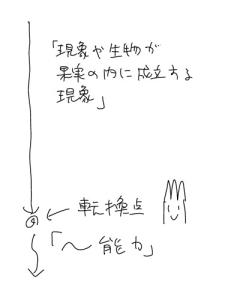 「現象や生物が
果実の内に成立する
現象」
転換点
「〜能力」